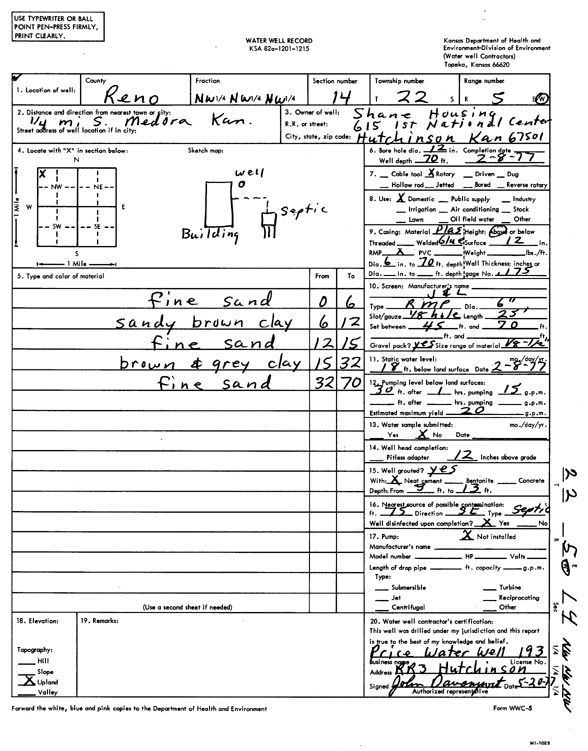 USE TYPEWRITER OR BALL
POINT PEN-PRESS FIRMLY,
PRINT CLEARLY.
WATER WELL RECORD
KSA 82a-1201-1215
Kansas Department of Health and
Environment-Division of Environment
(Water well Contractors)
Topeka, Kansas 66620
1. Location of well:
County
Reno
Fraction
NW 1/4 NW 1/4 NW 1/4
Section number
14
Township number
T 22 S
Range number
R 5 E W
2. Distance and direction from nearest town or city:
1/4 mi S. Medora Kan.
Street address of well location if in city:
3. Owner of well: Shane Housing
R.R. or street: 615 1st National Center
City, state, zip code: Hutchinson Kan 67501
4. Locate with "X" in section below:
N
X
NW NE
W E
SW SE
S
1 Mile
1 Mile
Sketch map:
well
Septic
Building
6. Bore hole dia. 12 in. Completion date
Well depth 70 ft. 2-8-77
7. Cable tool X Rotary Driven Dug
Hollow rod Jetted Bored Reverse rotary
8. Use: X Domestic Public supply Industry
Irrigation Air conditioning Stock
Lawn Oil field water Other
9. Casing: Material Plas Height: Above or below
Threaded Welded Glue Surface 12 in.
RMP X PVC Weight lbs./ft.
Dia. 6 in. to 70 ft. depth Wall Thickness: inches or
Dia. in. to ft. depth gage No. .175
5. Type and color of material
From To
fine sand 0 6
sandy brown clay 6 12
fine sand 12 15
brown & grey clay 15 32
fine sand 32 70
(Use a second sheet if needed)
10. Screen: Manufacturer's name
J & L
Type RMP Dia. 6"
Slot/gauze 1/8 hole Length 25'
Set between 45 ft. and 70 ft.
ft. and ft.
Gravel pack? yes Size range of material 1/8-1/2"
11. Static water level: mo./day/yr.
18 ft. below land surface Date 2-8-77
12. Pumping level below land surfaces:
30 ft. after 1 hrs. pumping 15 g.p.m.
ft. after hrs. pumping g.p.m.
Estimated maximum yield 20 g.p.m.
13. Water sample submitted: mo./day/yr.
Yes X No Date
14. Well head completion:
Pitless adapter 12 Inches above grade
15. Well grouted? yes
With: X Neat cement Bentonite Concrete
Depth: From ft. to 13 ft.
16. Nearest source of possible contamination:
ft. 75 Direction SE Type Septic
Well disinfected upon completion? X Yes No
17. Pump: X Not installed
Manufacturer's name
Model number HP Volts
Length of drop pipe ft. capacity g.p.m.
Type:
Submersible Turbine
Jet Reciprocating
Centrifugal Other
18. Elevation:
Topography:
Hill
Slope
X Upland
Valley
19. Remarks:
20. Water well contractor's certification:
This well was drilled under my jurisdiction and this report
is true to the best of my knowledge and belief.
Price Water Well 193
Business name License No.
Address RR3 Hutchinson
Signed John Davenport Date 5-20-77
Authorized representative
Forward the white, blue and pink copies to the Department of Health and Environment
Form WWC-5
T
22
R
5
E W
Sec
14
1/4 1/4 1/4
NW NW NW